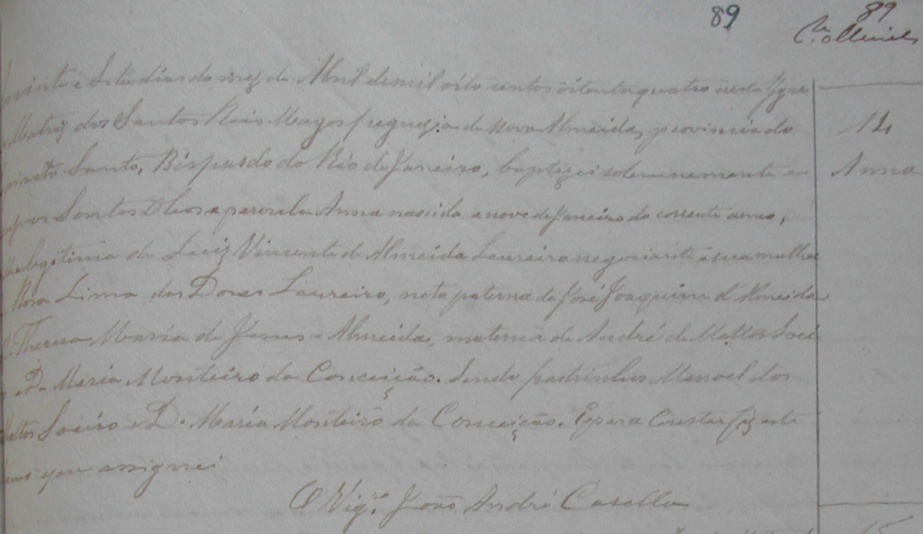 89
89
vinte e sete dias do mez de Abril de mil oito centos oitenta quatro nesta Igre
Matriz dos Santos Reis Magos freguezia de Nova Almeida, provincia do
Santo, Bispado do Rio de Janeiro, baptizei solemnemente e
Santos Oleos a parvula Anna nascida a nove de Janeiro do corrente anno,
legitima de Luiz Vincente de Almeida Loureiro negociante e sua mulher
Rosa Lima das Dores Loureiro, neta paterna de José Joaquim d'Almeida
Thereza Maria de Jesus Almeida, materna de André de Mattos Soei
e D. Maria Monteiro da Conceição. Sendo padrinhos Manoel dos
Mattos Soeiro e D. Maria Monteiro da Conceição. E para constar fiz este
que assignei
O Vigr.º João André Casella
14
Anna
15